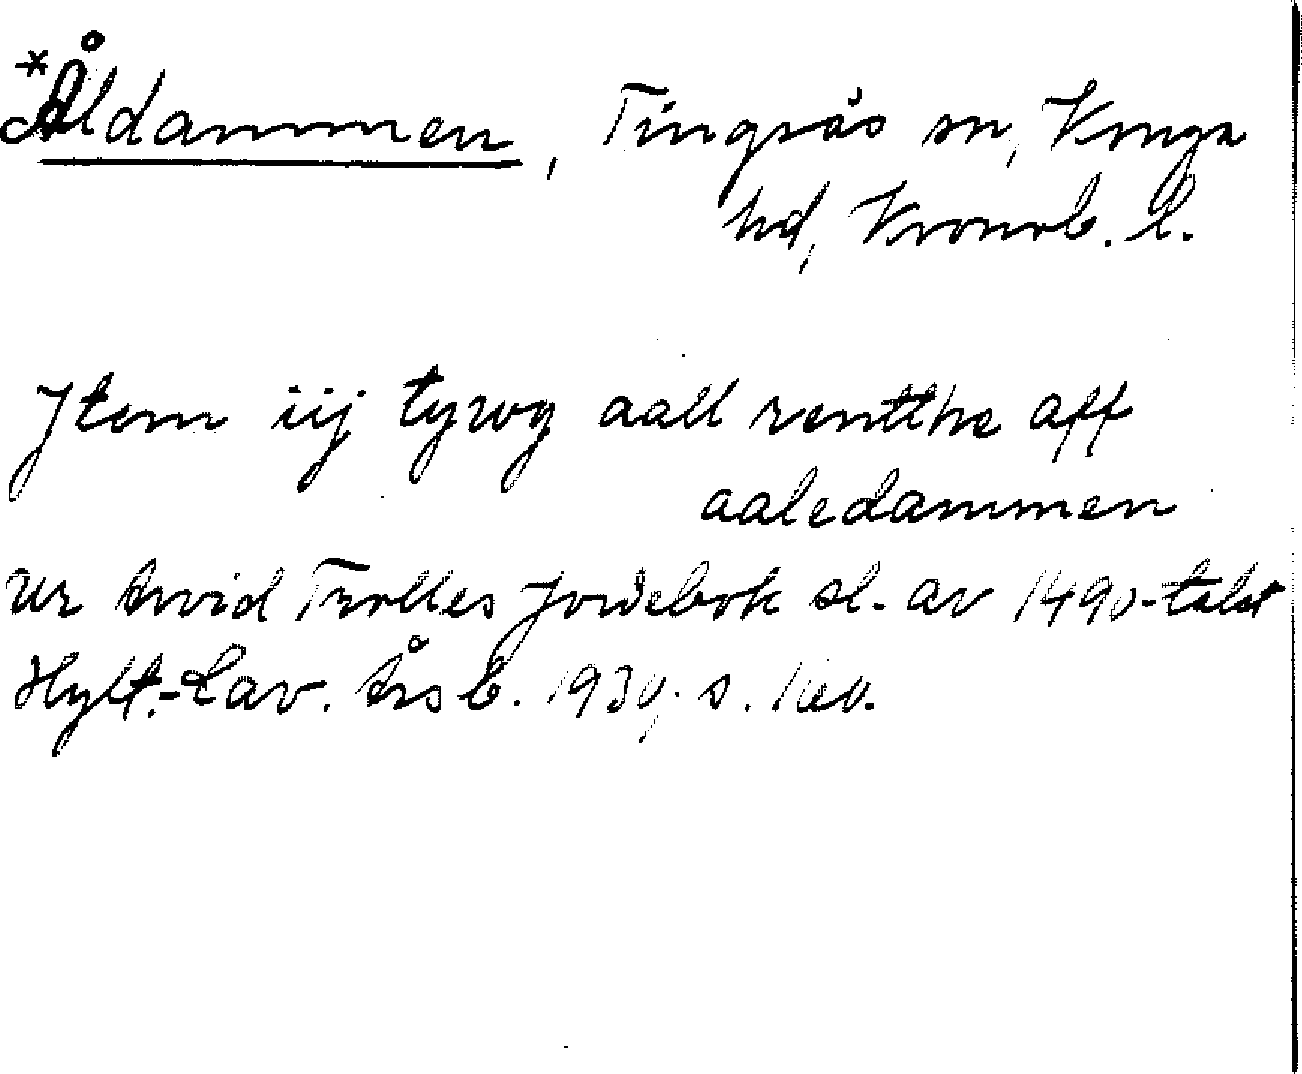 *Åldammen, Tingsås sn, Konga
hd, Kronob. l.
Jtem iij tywg aall rentthe aff
aaledammen
Ur Arvid Trolles Jordebok sl. av 1490-talet
Hylt.-Cav. Årsb. 1930, s.